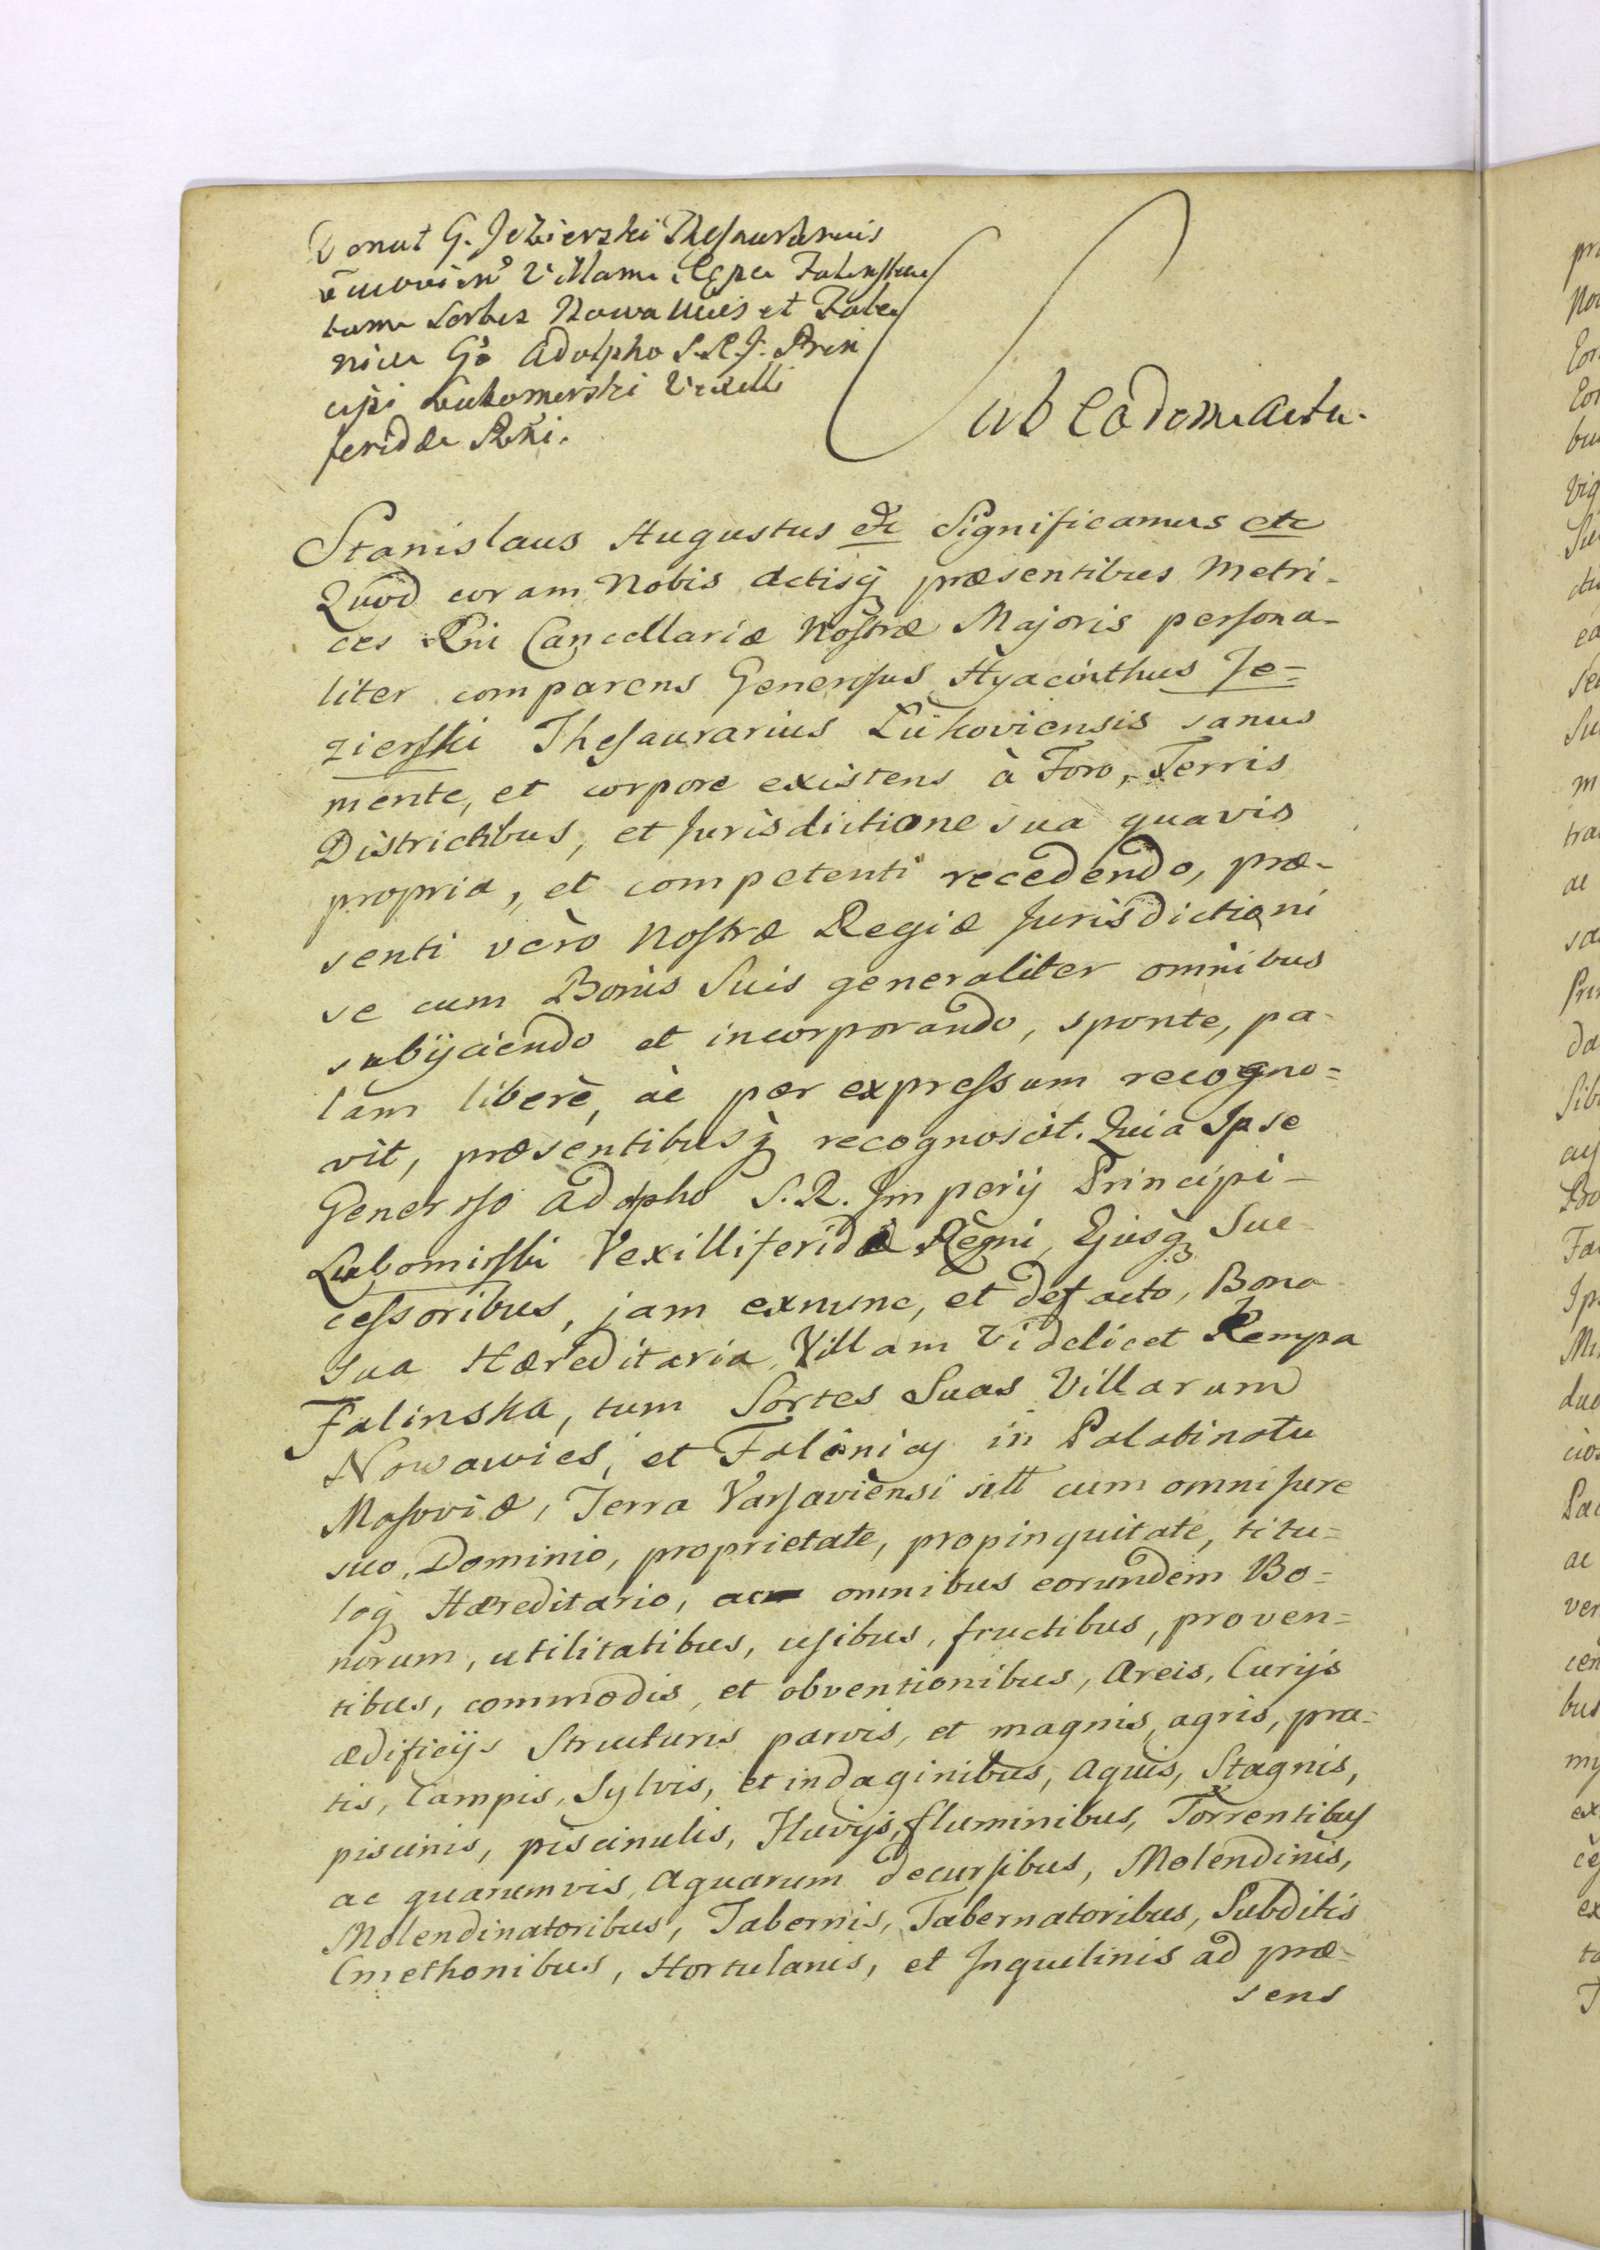 Donat G. Jezierski Thesaurarius
Lucovien. Villam Kępa Falinska
tum Sortes Nowawies et Fale
nica Gō Adolpho S.R.J. Prin
cipi Lubomirski Vexilli
feridæ Rñi.
Sub eadem Actu.
Stanislaus Augustus etc Significamus etc
Quod coram Nobis Actisq̃ præsentibus Metri-
ces Rni Cancellariæ Nostræ Majoris persona-
liter comparens Generosus Hyacinthus Je=
zierski Thesaurarius Lukoviensis sanus
mente, et corpore existens à Foro, Terris
Districtibus, et Jurisdictione sua quavis
propria, et competenti recedendo, præ-
senti verò Nostræ Regiæ Jurisdictioni
se cum Bonis Suis generaliter omnibus
subijciendo et incorporando, sponte, pa-
lam liberè, ac per expressum recogno=
vit, præsentibusq̃ recognoscit. Quia Ipse
Generoso Adolpho S.R. Imperij Principi-
Lubomirski Vexilliferidæ Regni, Ejusq̃ Suc
cessoribus, jam exnunc, et defacto, Bona
sua Hæreditaria, Villam Videlicet Kempa
Falinska, tum Sortes Suas Villarum
Nowawies, et Falinicy in Palatinatu
Masoviæ, Terra Varsaviensi sitt cum omni Jure
suo, Dominio, proprietate, propinquitate, titu=
loq̃ Hæreditario, ac omnibus eorundem Bo=
norum, utilitatibus, usibus, fructibus, proven=
tibus, commodis, et obventionibus, Areis, Curijs
ædificijs Structuris parvis, et magnis, agris, pra=
tis, Campis, Sylvis, et indaginibus, Aquis, Stagnis,
piscinis, piscinulis, Fluvijs, fluminibus, Torrentibus
ac quarumvis Aquarum decursibus, Molendinis,
Molendinatoribus, Tabernis, Tabernatoribus, Subditis
Cmethonibus, Hortulanis, et Inquilinis ad præ-
sens